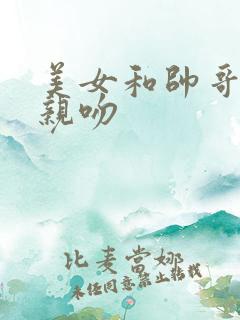 美女和帥哥
親吻
比麦當娜
未任同意禁止转载